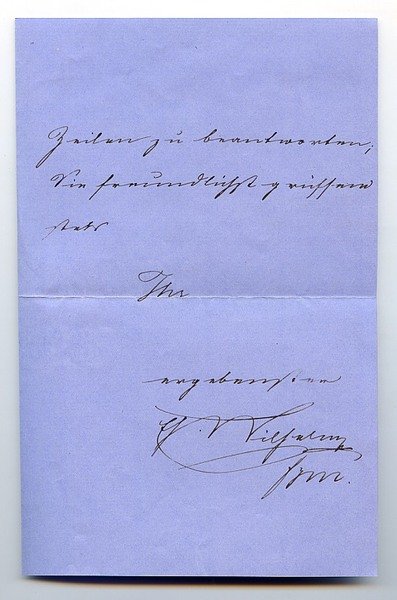 Zeilen zu beantworten,
Sie freundlichst grüssend
stets
Ihr
ergebenster
Wilhelmj